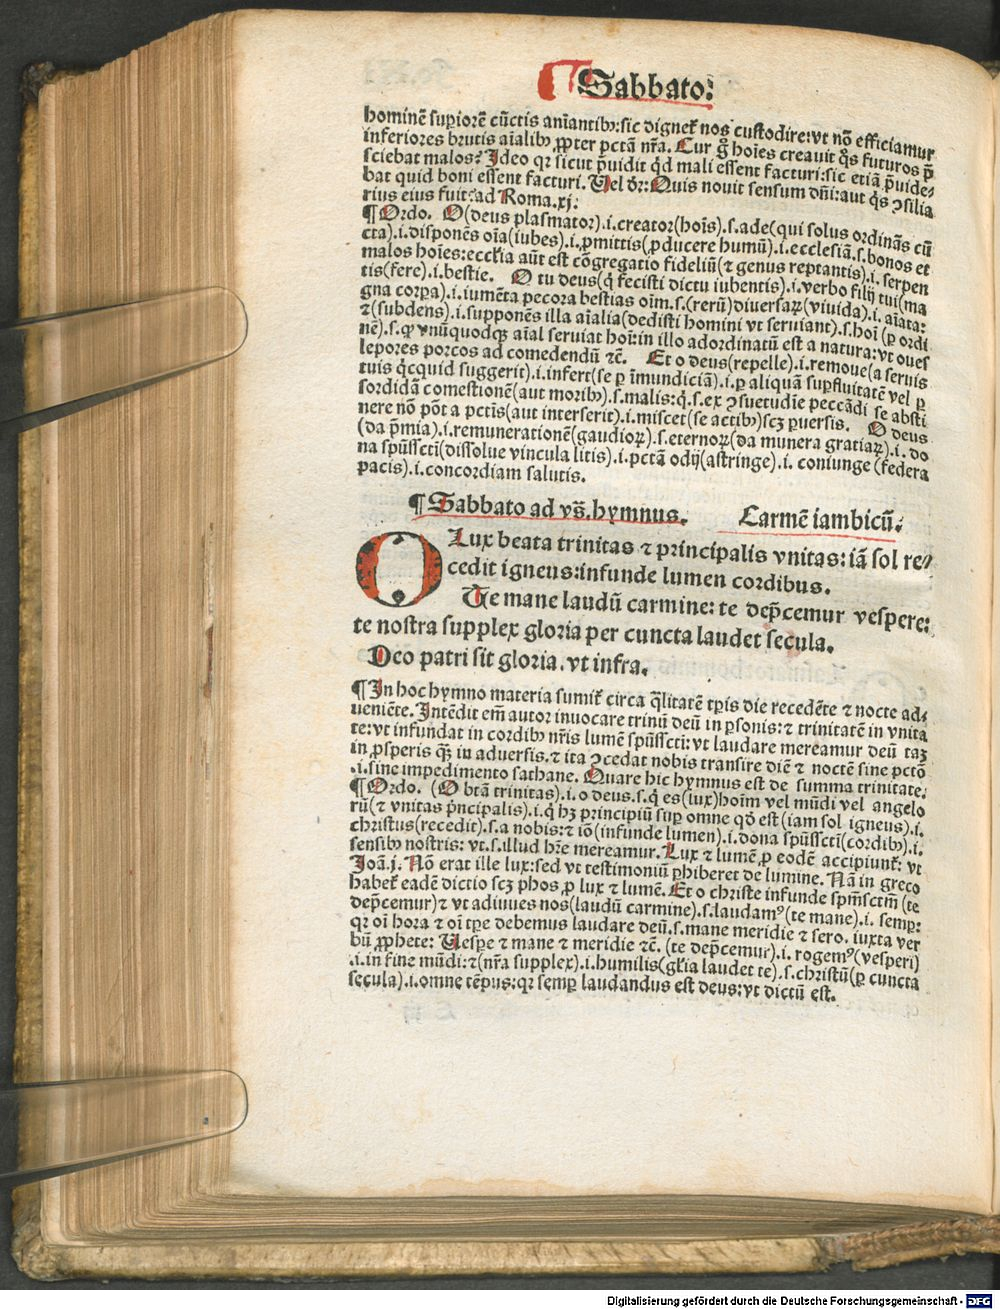 Sabbato:
hominē supiorē cūctis aniantibꝰ: sic dignet̄ nos custodire: vt nō efficiamur
inferiores brutis aialibꝰ ꝓpter pctā nr̄a. Cur g̊ hoies creauit q̊s futuros p̄
sciebat malos? Ideo qꝛ sicut p̄uidit qd̄ mali essent facturi: sic etiā p̄uide-
bat quid boni essent facturi. Uel dr̄: Quis nouit sensum dn̄i: aut q̊s ꝯsilia
rius eius fuit: ad Roma.xj:
¶ Ordo. O (deus plasmator).i.creator (hoīs).s.ade (qui solus ordinās cū
cta).i.disponēs oīa (iubes).i.ꝑmittis (ꝓducere humū).i.ecclesiā.s.bonos et
malos hoīes: eccl'ia aūt est cōgregatio fideliū (⁊ genus reptantis).i. serpen
tis (fere).i.bestie. O tu deus (q̄ fecisti dictu iubentis).i.verbo filij tui (ma
gna corꝑa).i.iumēta pecora bestias oīm.s.(rerū) diuersaꝝ (viuida).i. aīata:
⁊ (subdens).i.supponēs illa aīalia (dedisti homini vt seruiant).s.hoī (ꝑ ordi
nē).s.ꝙ vnūquodqꝫ aīal seruiat hoī: in illo ad ordinatū est a natura: vt oues
lepores porcos ad comedendū ⁊c̄. Et o deus (repelle).i.remoue (a seruis
tuis q̇cquid suggerit).i.infert (se ꝑ īmundiciā).i.ꝑ aliquā supfluitatē vel ꝑ
sordidā comestionē (aut moribꝰ).s.malis: q̇.s.ex ꝯsuetudīe peccādi se absti
nere nō pōt a pctīs (aut interserit).i.miscet (se actibꝰ) scꝫ ꝑuersis. O deus
(da p̄mia).i.remunerationē (gaudioꝝ).s.eternoꝝ (da munera gratiaꝝ).i. do
na spūssctī (dissolue vincula litis).i.pctā odij (astringe).i. coniunge (federa
pacis).i.concordiam salutis.
¶ Sabbato ad vs̄. hymnus. Carmē iambicū:
O Lux beata trinitas ⁊ principalis vnitas: iā sol re-
cedit igneus: infunde lumen cordibus.
Te mane laudū carmine: te dep̄cemur vespere:
te nostra supplex gloria per cuncta laudet secula.
Deo patri sit gloria. vt infra.
¶ In hoc hymno materia sumit̄ circa q̄litatē tp̄is die recedēte ⁊ nocte ad-
ueniēte. Intēdit em̄ autor inuocare trinū deū in ꝑsonis: ⁊ trinitatē in vnita
te: vt infundat in cordibꝰ nr̄is lumē spūssctī: vt laudare mereamur deū taꝫ
in ꝓsperis qꝫ̄ in aduersis. ⁊ ita ꝯcedat nobis transire diē ⁊ noctē sine pctō
.i.sine impedimento sathane. Quare hic hymnus est de summa trinitate.
¶ Ordo. (O btā trinitas).i.o deus.s.q̄ es (lux) hoīm vel mūdi vel angelo
rū (⁊ vnitas p̄ncipalis).i.q̄ hꝫ principiū sup omne qd̄ est (iam sol igneus).i.
christus (recedit).s.a nobis: ⁊ iō (infunde lumen).i.dona spūssctī (cordibꝰ).i.
sensibꝰ nostris: vt.s.illud hr̄e mereamur. Lux ⁊ lumē ꝓ eodē accipiunt̄: vt
Joā.j. Nō erat ille lux: sed vt testimoniū ꝑhiberet de lumine. Nā in greco
habet̄ eadē dictio scꝫ phos ꝓ lux ⁊ lumē. Et o christe infunde spm̄sctm̄ (te
dep̄cemur) ⁊ vt adiuues nos (laudū carmine).s.laudamꝰ (te mane).i. semp:
qꝛ oī hora ⁊ oī tp̄e debemus laudare deū.s.mane meridie ⁊ sero. iuxta ver
bū ꝓphete: Uesp̄e ⁊ mane ⁊ meridie ⁊c̄. (te dep̄cemur).i. rogemꝰ (vesperi)
.i.in fine mūdi: ⁊ (nr̄a supplex).i.humilis (gl'ia laudet te).s.christū (ꝑ cuncta
secula).i.omne tēpus: qꝛ semꝑ laudandus est deus: vt dictū est.
Digitalisierung gefördert durch die Deutsche Forschungsgemeinschaft - DFG